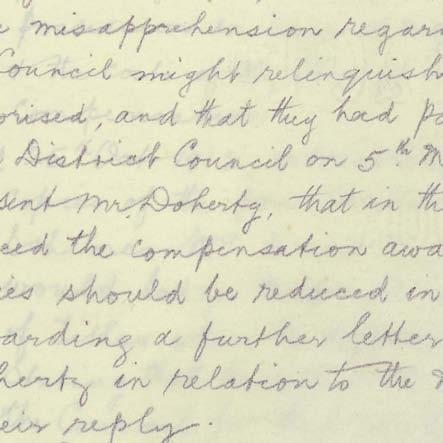 misapprehension regar
Council might relinquish
orised, and that they had Pa
District Council on 5th M
sent Mr. Doherty, that in th
eed the compensation awa
ies should be reduced in
arding a further letter
herty in relation to the
eir reply.